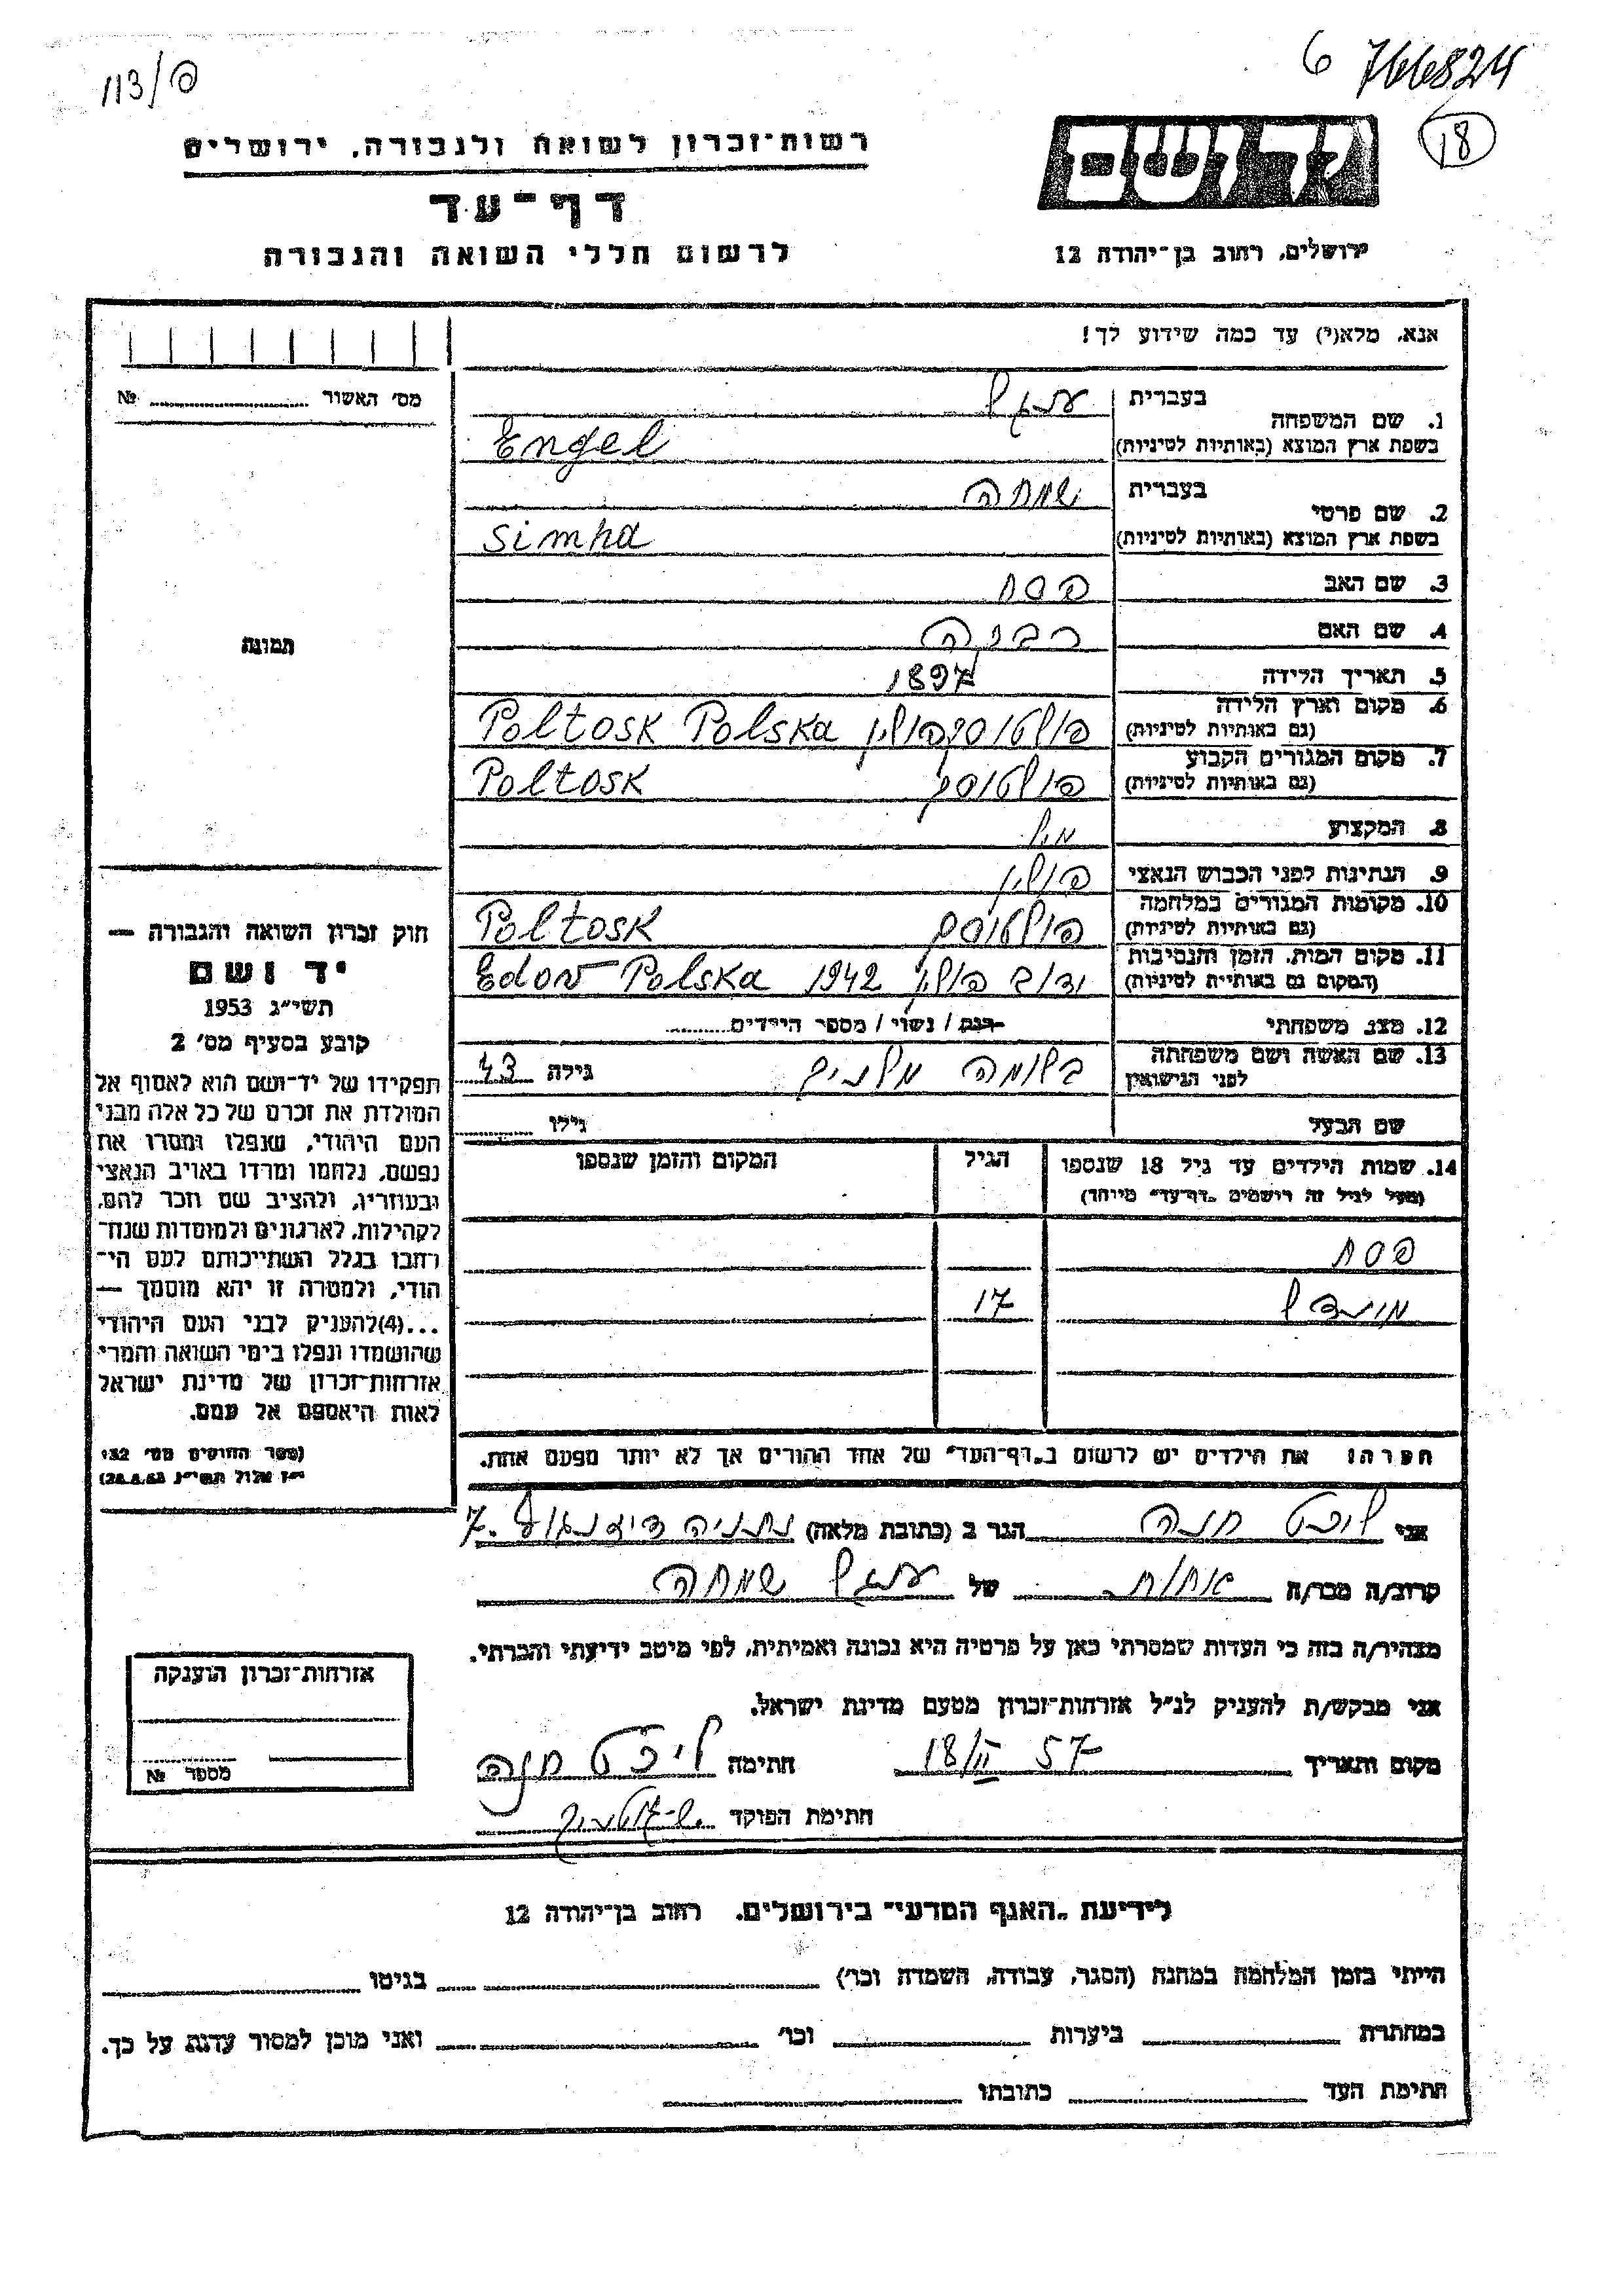 113/פ
6 766824
18
רשות־זכרון לשואה ולגבורה, ירושלים
דף־עד
לרשום חללי השואה והגבורה
יד ושם
ירושלים, רחוב בן־יהודה 12
אנא, מלא(י) עד כמה שידוע לך!
מס' האשור № 
1. שם המשפחה בעברית ענגל
בשפת ארץ המוצא (באותיות לטיניות) Engel
2. שם פרטי בעברית שמחה
בשפת ארץ המוצא (באותיות לטיניות) Simha
3. שם האב פסח
4. שם האם
5. תאריך הלידה 1897
6. מקום וארץ הלידה (גם באותיות לטיניות) פולטוסק פולין Poltosk Polska
7. מקום המגורים הקבוע (גם באותיות לטיניות) פולטוסק Poltosk
8. המקצוע
9. הנתינות לפני הכבוש הנאצי פולין
10. מקומות המגורים במלחמה (גם באותיות לטיניות) פולטוסק Poltosk
11. מקום המות, הזמן והנסיבות (המקום גם באותיות לטיניות) פולין 1942 Edov Polska
12. מצב משפחתי רווק / נשוי / מספר הילדים
13. שם האשה ושם משפחתה לפני הנישואין בלומה גילה 43
שם הבעל גילו
14. שמות הילדים עד גיל 18 שנספו הגיל המקום והזמן שנספו
(מעל לגיל זה רושמים "דף־עד" מיוחד)
פסח
17
הערה: את הילדים יש לרשום ב"דף־העד" של אחד ההורים אך לא יותר מפעם אחת.
תמונה
חוק זכרון השואה והגבורה —
יד ושם
תשי"ג 1953
קובע בסעיף מס' 2
תפקידו של יד־ושם הוא לאסוף אל
המולדת את זכרם של כל אלה מבני
העם היהודי, שנפלו ומסרו את
נפשם, נלחמו ומרדו באויב הנאצי
ובעוזריו, ולהציב שם וזכר להם,
לקהילות, לארגונים ולמוסדות שנח־
רבו בגלל השתייכותם לעם הי־
הודי, ולמטרה זו יהא מוסמך —
...(4) להעניק לבני העם היהודי
שהושמדו ונפלו בימי השואה והמרי
אזרחות־זכרון של מדינת ישראל
לאות היאספם אל עמם.
(ספר החוקים מס' 132
י"ז אלול תשי"ג 28.8.53)
אני ליכט חנה הגר ב (כתובת מלאה) נתניה דיזנגוף 7
קרוב/ה מכר/ה אחות של ענגל שמחה
מצהיר/ה בזה כי העדות שמסרתי כאן על פרטיה היא נכונה ואמיתית, לפי מיטב ידיעתי והכרתי.
אני מבקש/ת להעניק לנ"ל אזרחות־זכרון מטעם מדינת ישראל.
מקום ותאריך 18/II 57 חתימה ליכט חנה
חתימת הפוקד
אזרחות־זכרון הוענקה
מספר №
לידיעת "האגף המדעי" בירושלים, רחוב בן־יהודה 12
הייתי בזמן המלחמה במחנה (הסגר, עבודה, השמדה וכר') בגיטו
במחתרת ביערות וכר' ואני מוכן למסור עדות על כך.
חתימת העד כתובתו